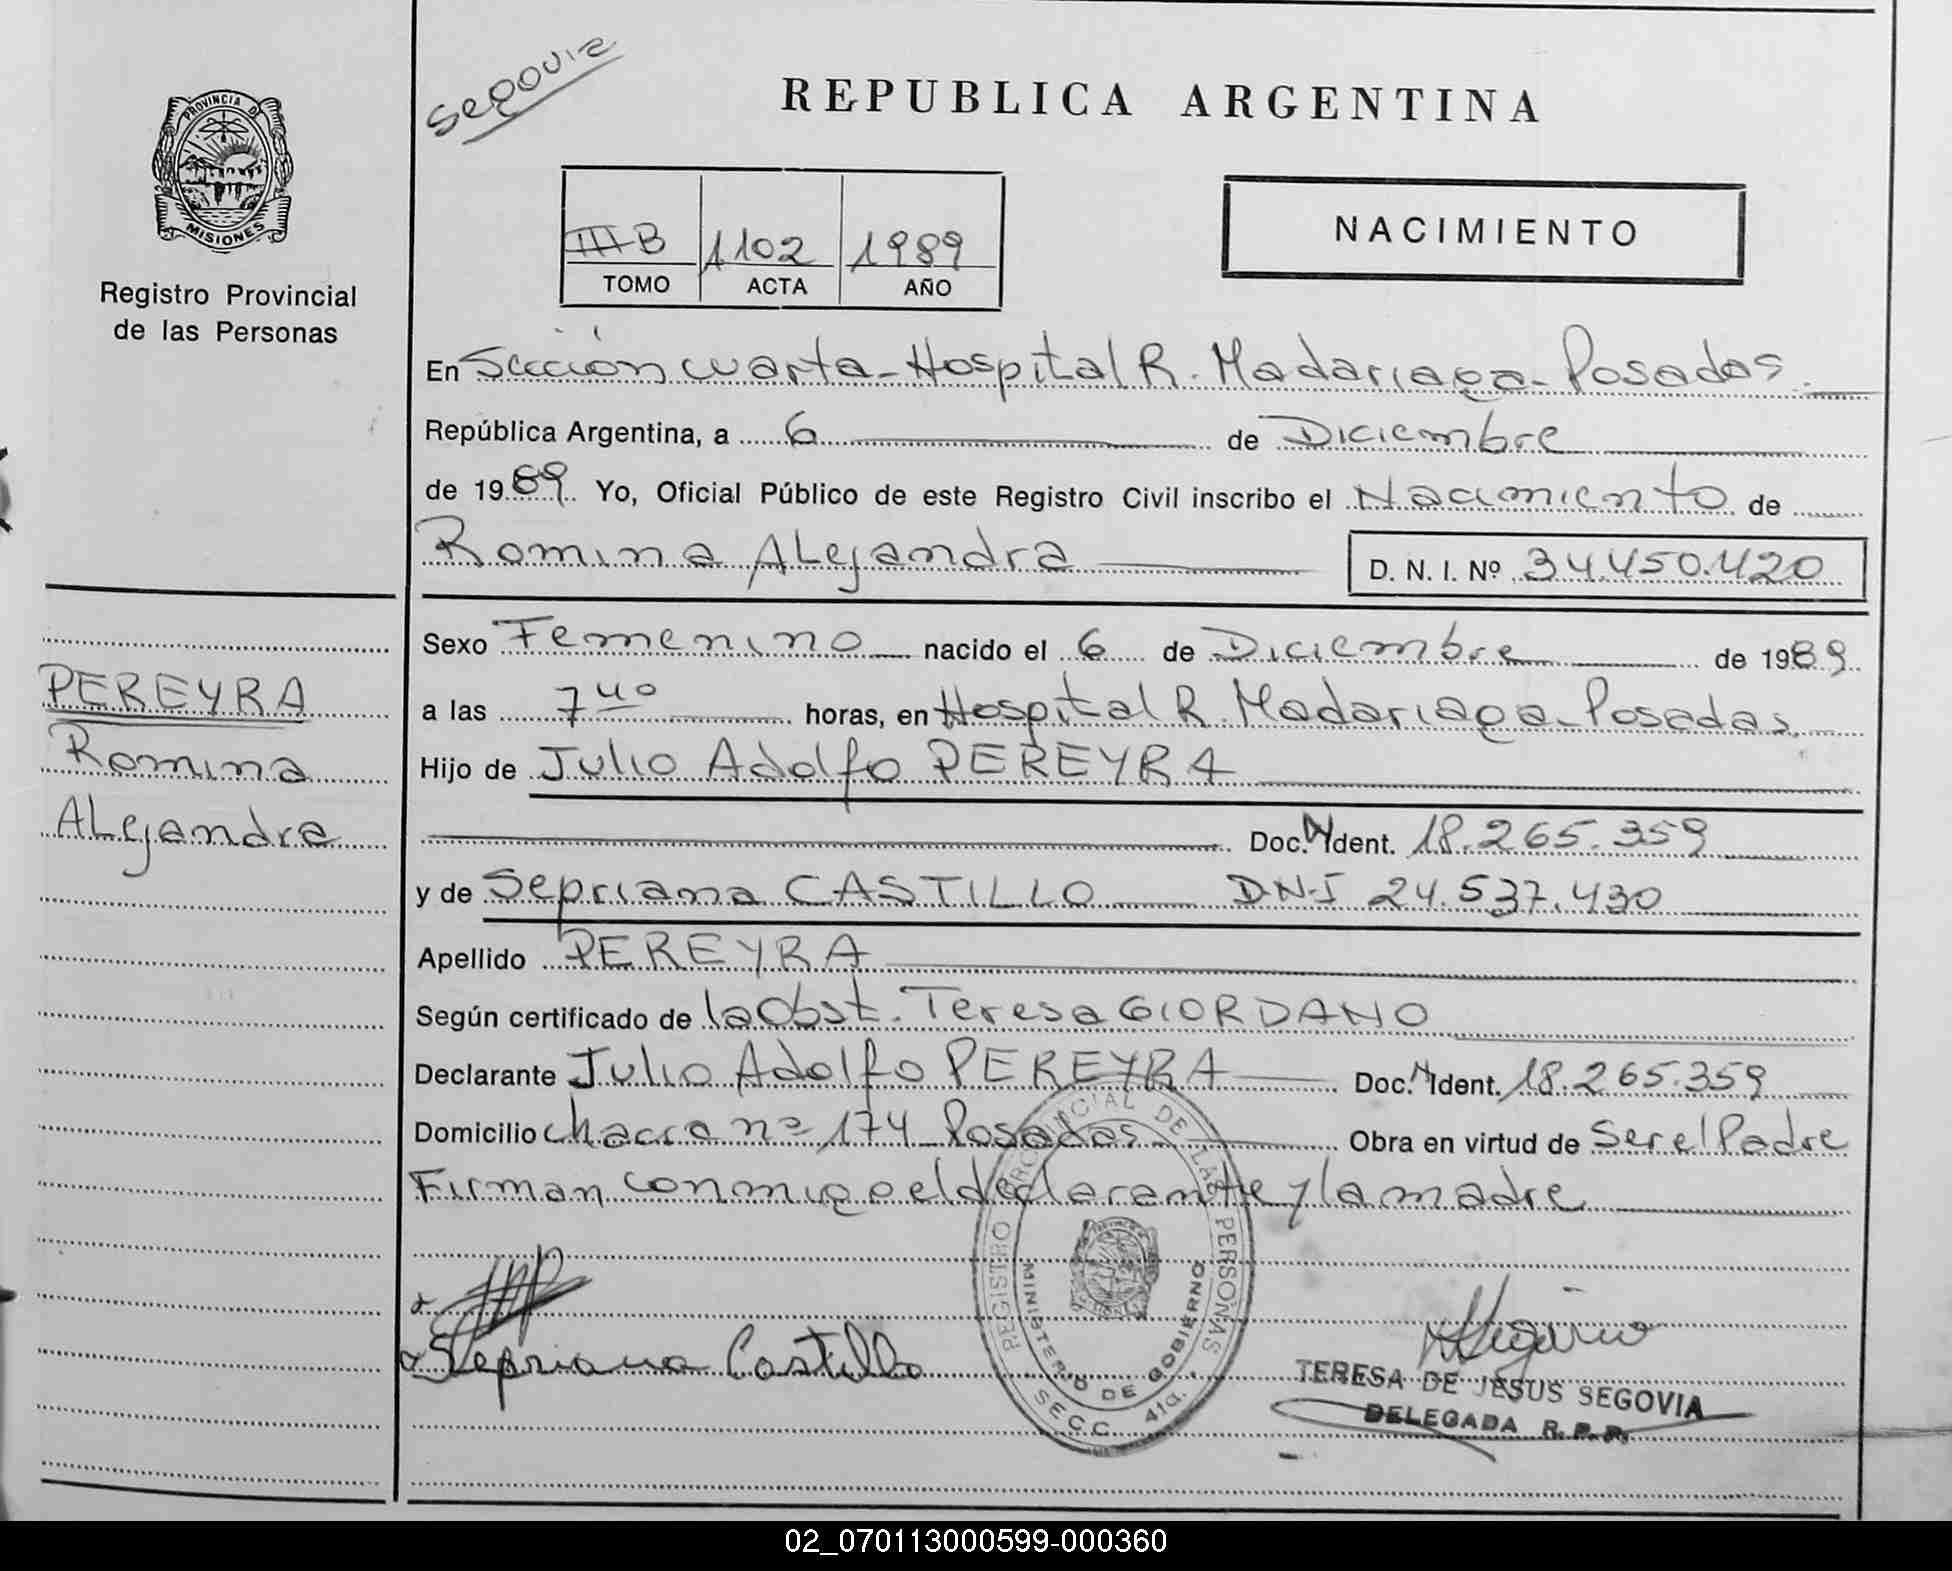 Segovia
REPUBLICA ARGENTINA
PROVINCIA DE
MISIONES
Registro Provincial
de las Personas
III B 1102 1989
TOMO ACTA AÑO
NACIMIENTO
En Sección cuarta - Hospital R. Madariaga - Posadas.
República Argentina, a 6 de Diciembre
de 1989 Yo, Oficial Público de este Registro Civil inscribo el Nacimiento de
Romina ALejandra D. N. I. Nº 34.450.420
Sexo Femenino nacido el 6 de Diciembre de 1989
a las 7 40 horas, en Hospital R. Madariaga - Posadas.
Hijo de Julio Adolfo PEREYRA
Doc. N Ident. 18.265.359
y de Sepriana CASTILLO DNI 24.537.430
Apellido PEREYRA
Según certificado de la Obst. Teresa GIORDANO
Declarante Julio Adolfo PEREYRA Doc. N Ident. 18.265.359
Domicilio chacra nº 174 Posadas Obra en virtud de Ser el Padre
Firman conmigo el declarante y la madre
PEREYRA
Romina
ALejandra
Sepriana Castillo
REGISTRO PROVINCIAL DE LAS PERSONAS
MINISTERIO DE GOBIERNO
SECC. 41a.
TERESA DE JESUS SEGOVIA
DELEGADA R. P. P.
02_070113000599-000360